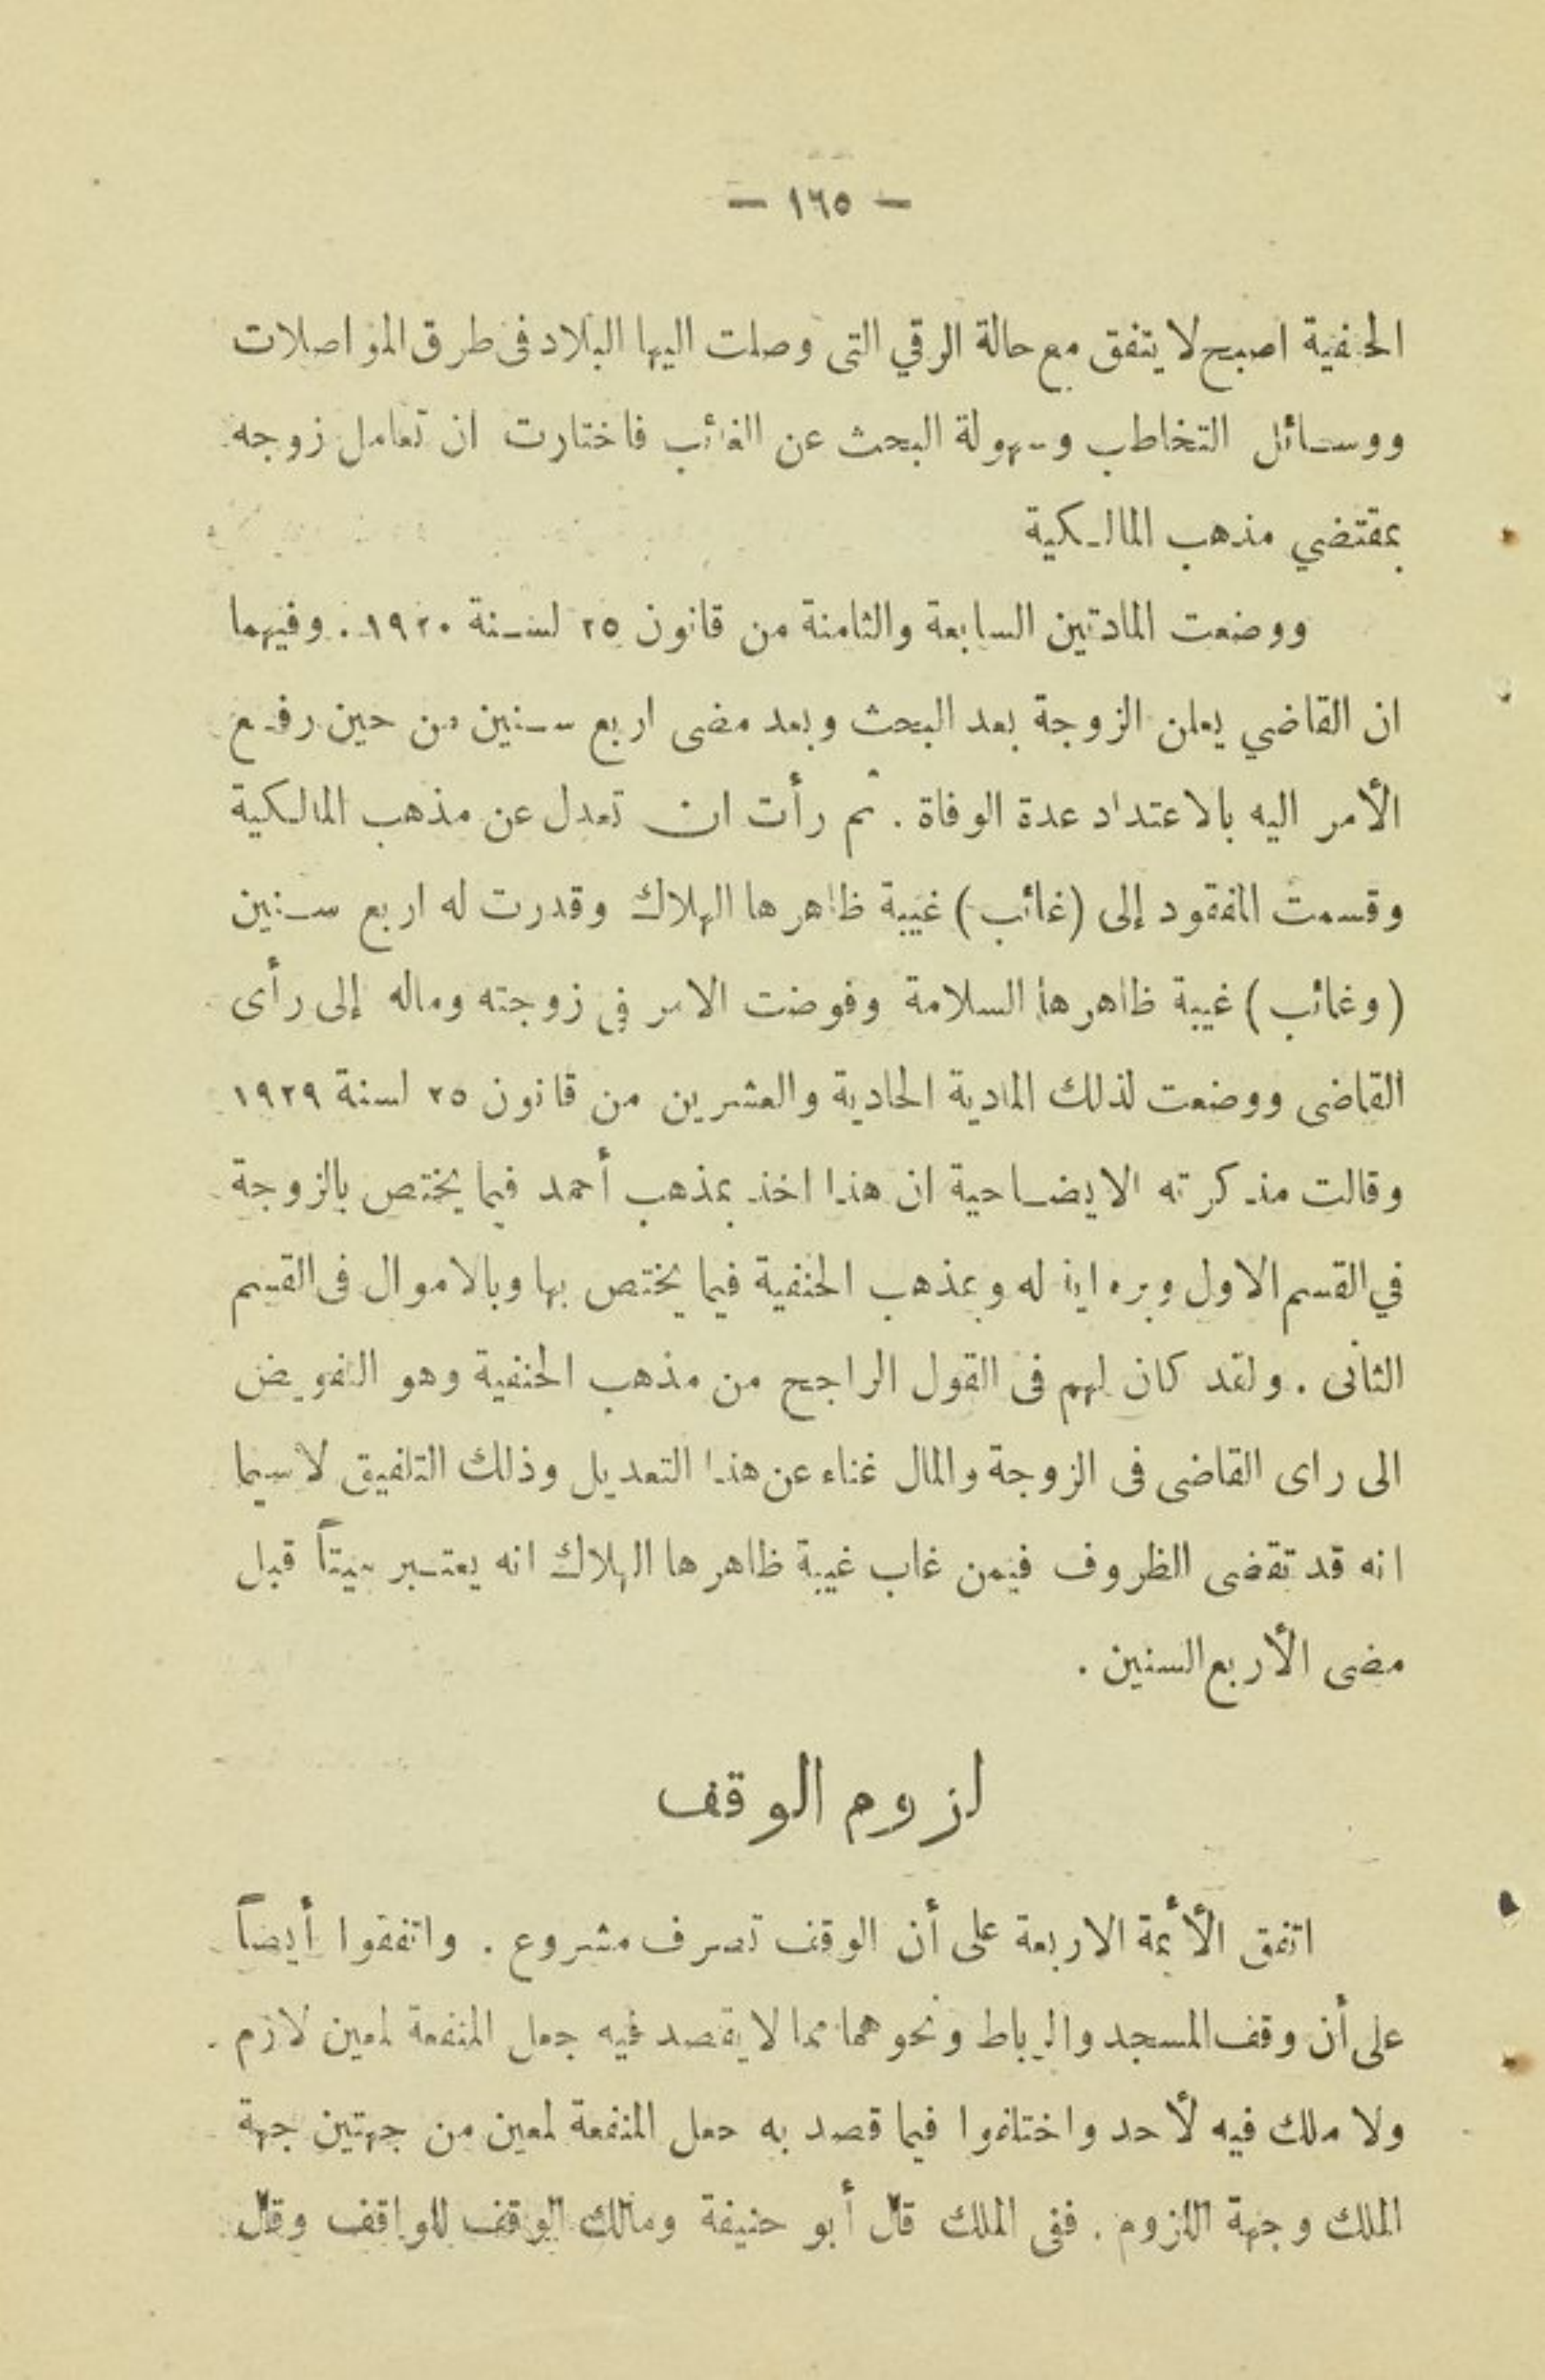 — ١٦٥ —
الحنفية اصبح لا يتفق مع حالة الرقي التى وصلت اليها البلاد فى طرق المواصلات
ووسائل التخاطب وسهولة البحث عن الغائب فاختارت ان تعامل زوجه
بمقتضي مذهب المالكية
ووضعت المادتين السابعة والثامنة من قانون ٢٥ لسنة ١٩٢٠. وفيهما
ان القاضي يعلن الزوجة بعد البحث وبعد مضى اربع سنين من حين رفع
الأمر اليه بالاعتداد عدة الوفاة . ثم رأت ان تعدل عن مذهب المالكية
وقسمت المفقود إلى (غائب) غيبة ظاهرها الهلاك وقدرت له اربع سنين
(وغائب) غيبة ظاهرها السلامة وفوضت الامر في زوجته وماله إلى رأى
القاضى ووضعت لذلك المادية الحادية والعشرين من قانون ٢٥ لسنة ١٩٢٩
وقالت مذكرته الايضاحية ان هذا اخذ بمذهب أحمد فيما يختص بالزوجة
في القسم الاول وبرواية له وبمذهب الحنفية فيما يختص بها وبالاموال فى القسم
الثانى . ولقد كان لهم فى القول الراجح من مذهب الحنفية وهو التفويض
الى راى القاضى فى الزوجة والمال غناء عن هذا التعديل وذلك التلفيق لاسيما
انه قد تقضى الظروف فيمن غاب غيبة ظاهرها الهلاك انه يعتبر ميتاً قبل
مضى الأربع السنين .
لزوم الوقف
اتفق الأئمة الاربعة على أن الوقف تصرف مشروع . واتفقوا أيضاً
على أن وقف المسجد والرباط ونحوهما مما لا يقصد فيه جعل المنفعة لمعين لازم .
ولا ملك فيه لأحد واختلفوا فيما قصد به جعل المنفعة لمعين من جهتين جهة
الملك وجهة اللزوم . ففى الملك قال أبو حنيفة ومالك الوقف للواقف وقال